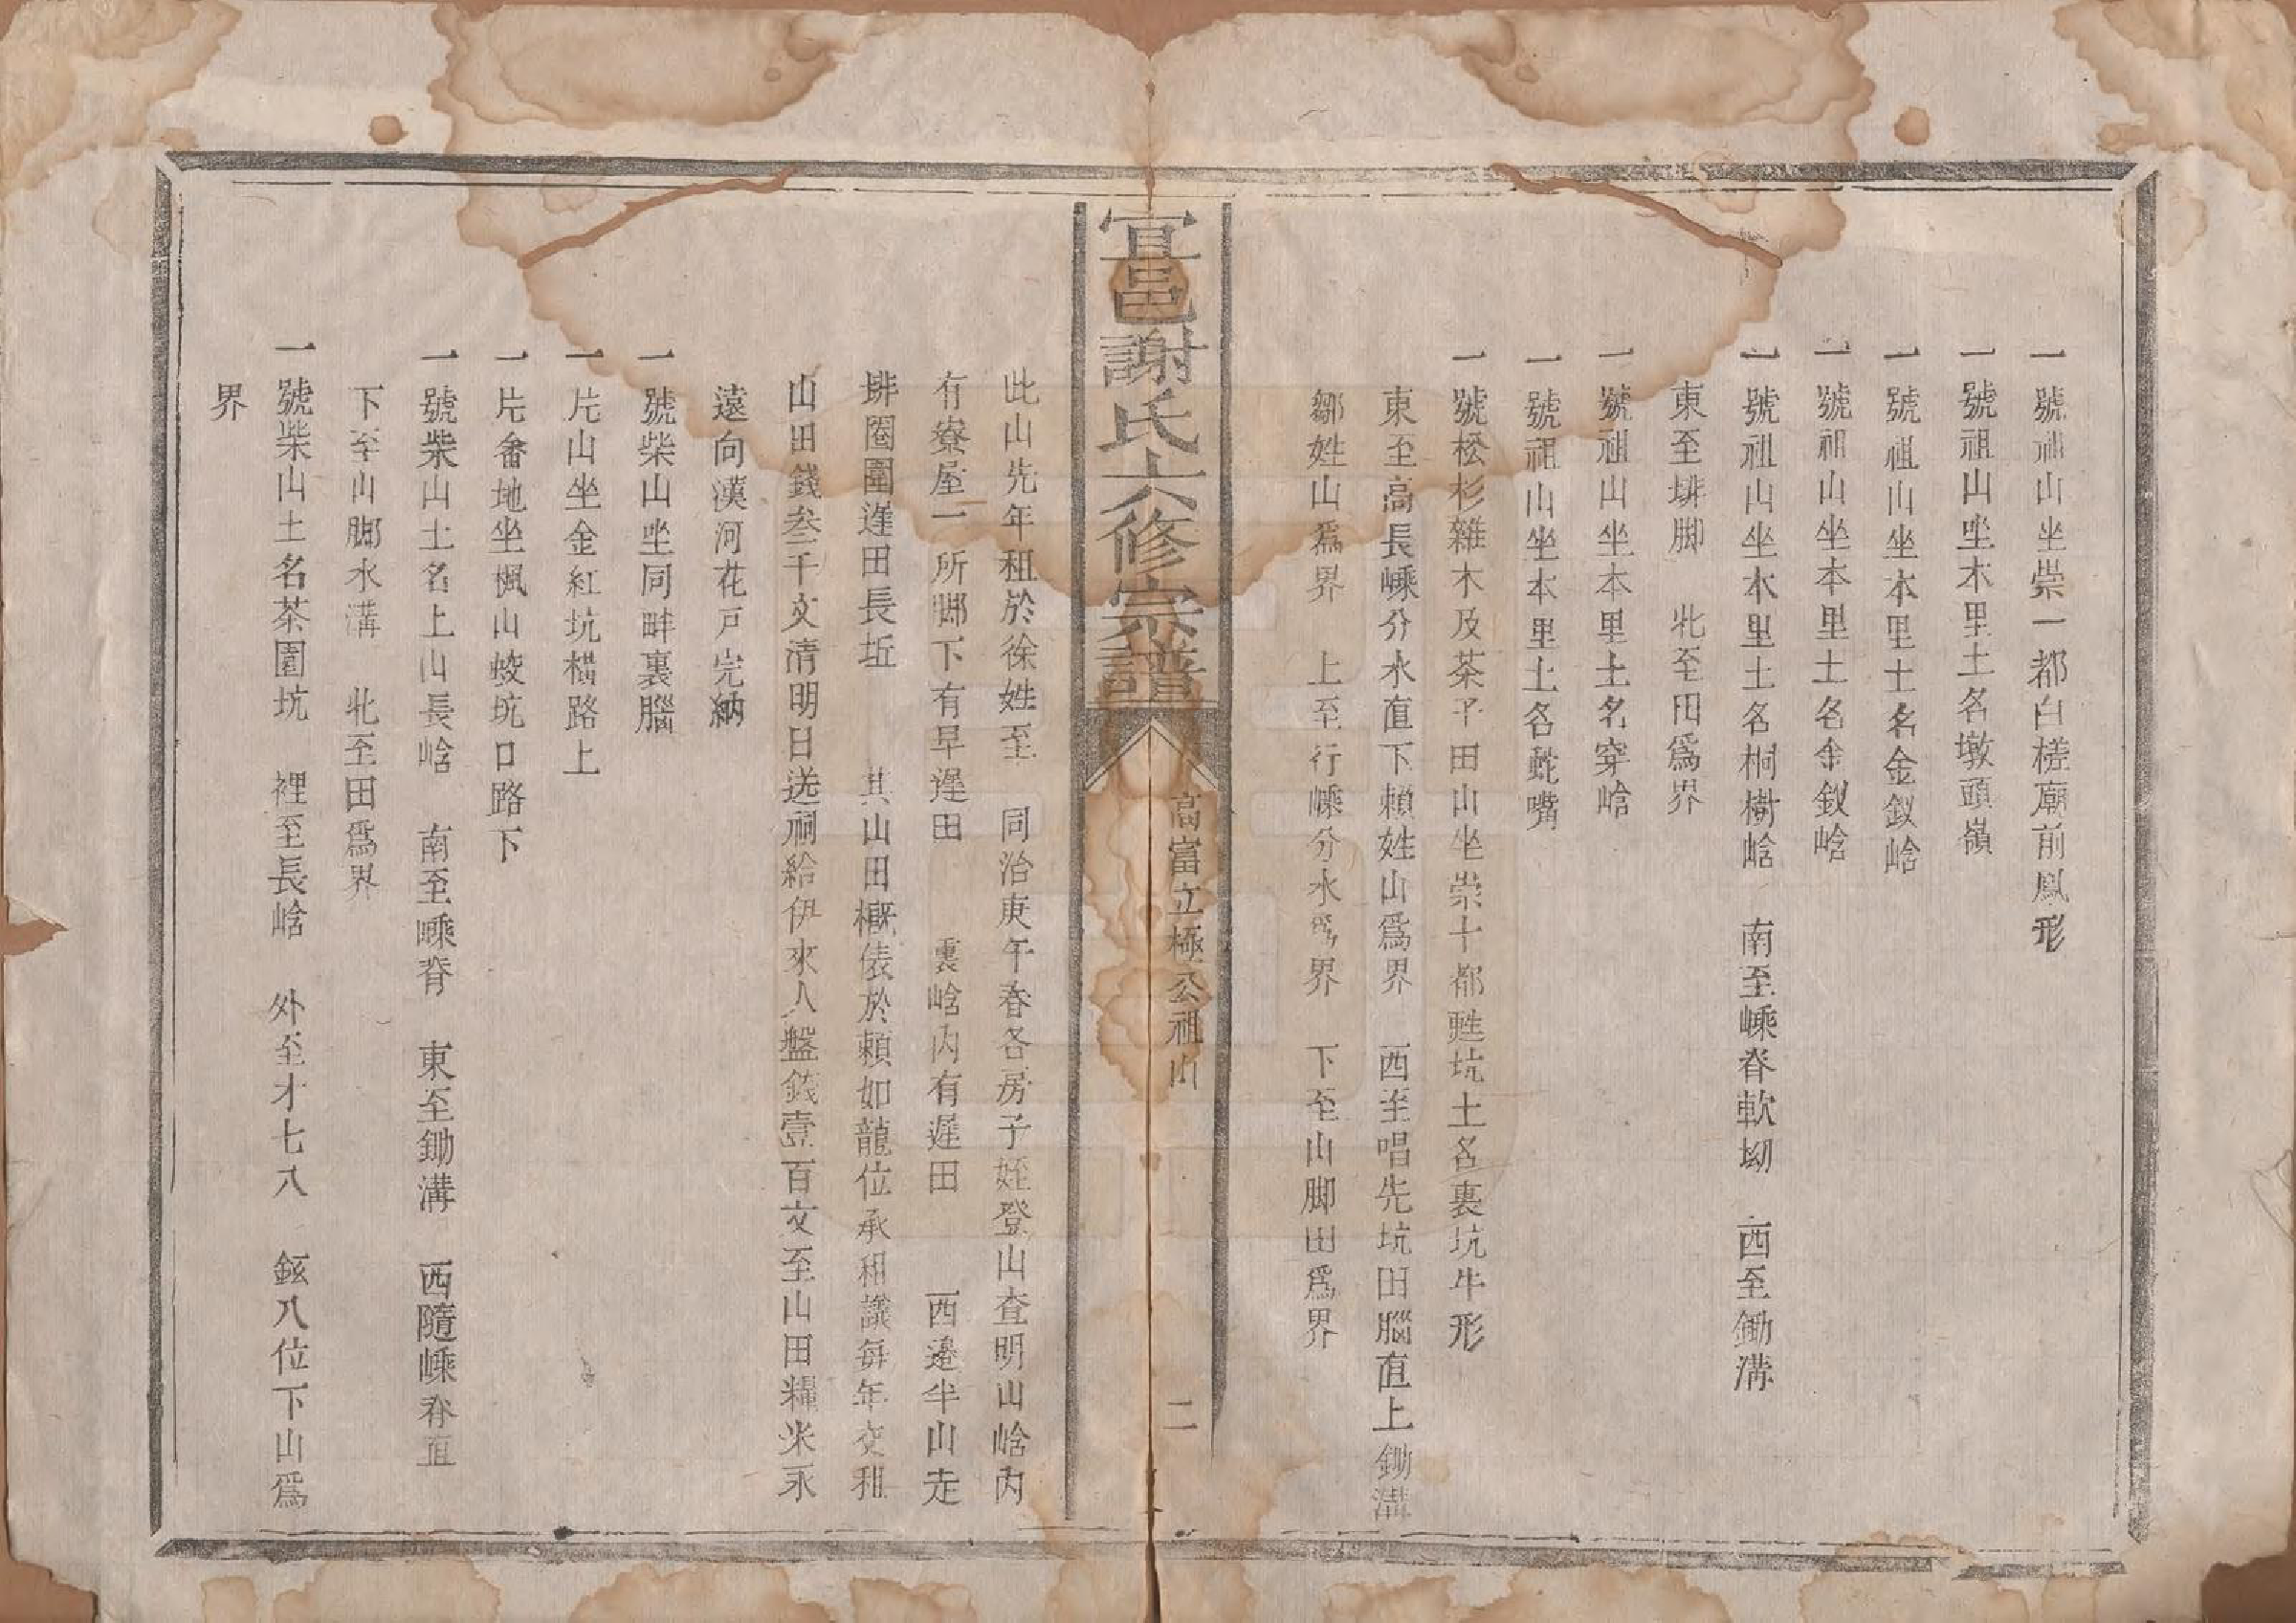 一號祖山坐崇一都白槎廟前鳳形
一號祖山坐本里土名墩頭嶺
一號祖山坐本里土名金釵峆
一號祖山坐本里土名金釵峆
一號祖山坐本里土名桐樹峆 南至嵊脊軟坳 西至鋤溝
東至埂脚 北至田爲界
一號祖山坐本里土名穿峆
一號祖山坐本里土名蛇嘴
一號松杉雜木及茶子田山坐崇十都甦坑土名裏坑牛形
東至高長嵊分水直下賴姓山爲界 西至唱先坑田腦直上鋤溝
鄒姓山爲界 上至行嵊分水爲界 下至山脚田爲界
富邑謝氏六修宗譜
高富立極公祖山
二
此山先年租於徐姓至 同治庚午春各房子姪登山查明山峆內
有寮屋一所脚下有早遲田 裏峆內有遲田 西邊半山走
埂圈圍遲田長坵 其山田概俵於賴如龍位承租議每年交租
山田錢叁千文清明日送祠給伊來人盤錢壹百文至山田糧米永
遠向漢河花戸完納
一號柴山坐同畔裏腦
一片山坐金紅坑橫路上
一片畬地坐楓山崚坑口路下
一號柴山土名上山長峆 南至嵊脊 東至鋤溝 西隨嵊脊直
下至山脚水溝 北至田爲界
一號柴山土名茶園坑 裡至長峆 外至才七八 鉉八位下山爲
界